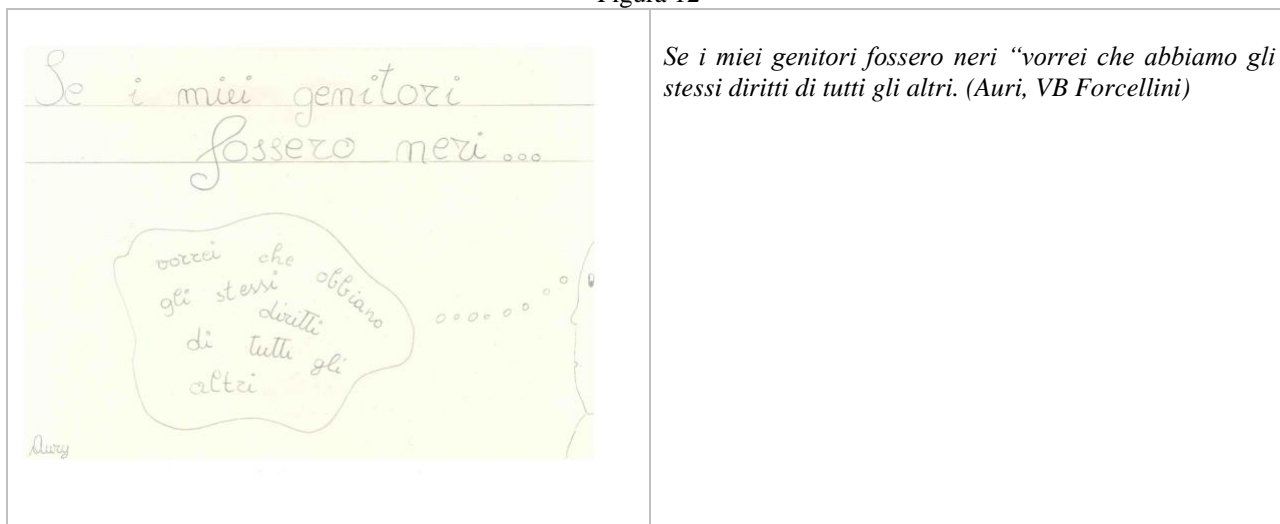 Figura 12
Se i miei genitori
fossero neri...
vorrei che abbiano
gli stessi
diritti
di tutti gli
altri
Aury
Se i miei genitori fossero neri “vorrei che abbiamo gli
stessi diritti di tutti gli altri. (Auri, VB Forcellini)